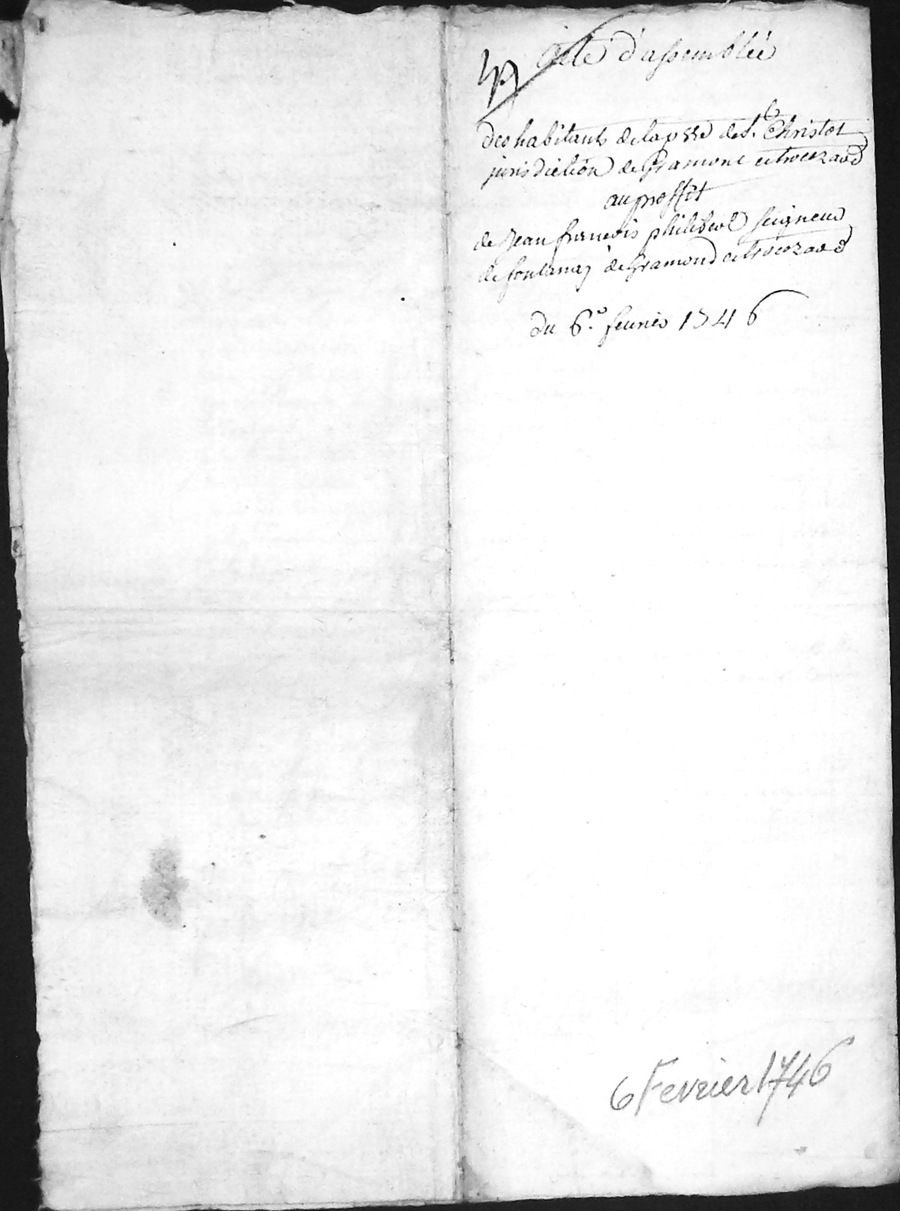 acte d'assemblée
des habitants de la psse de St. Christot
jurisdiction de Gramont et
au proffit
de Jean françois philibert seigneur
de fontanez de Gramond et
du 6.e feurier 1746
6 Fevrier 1746